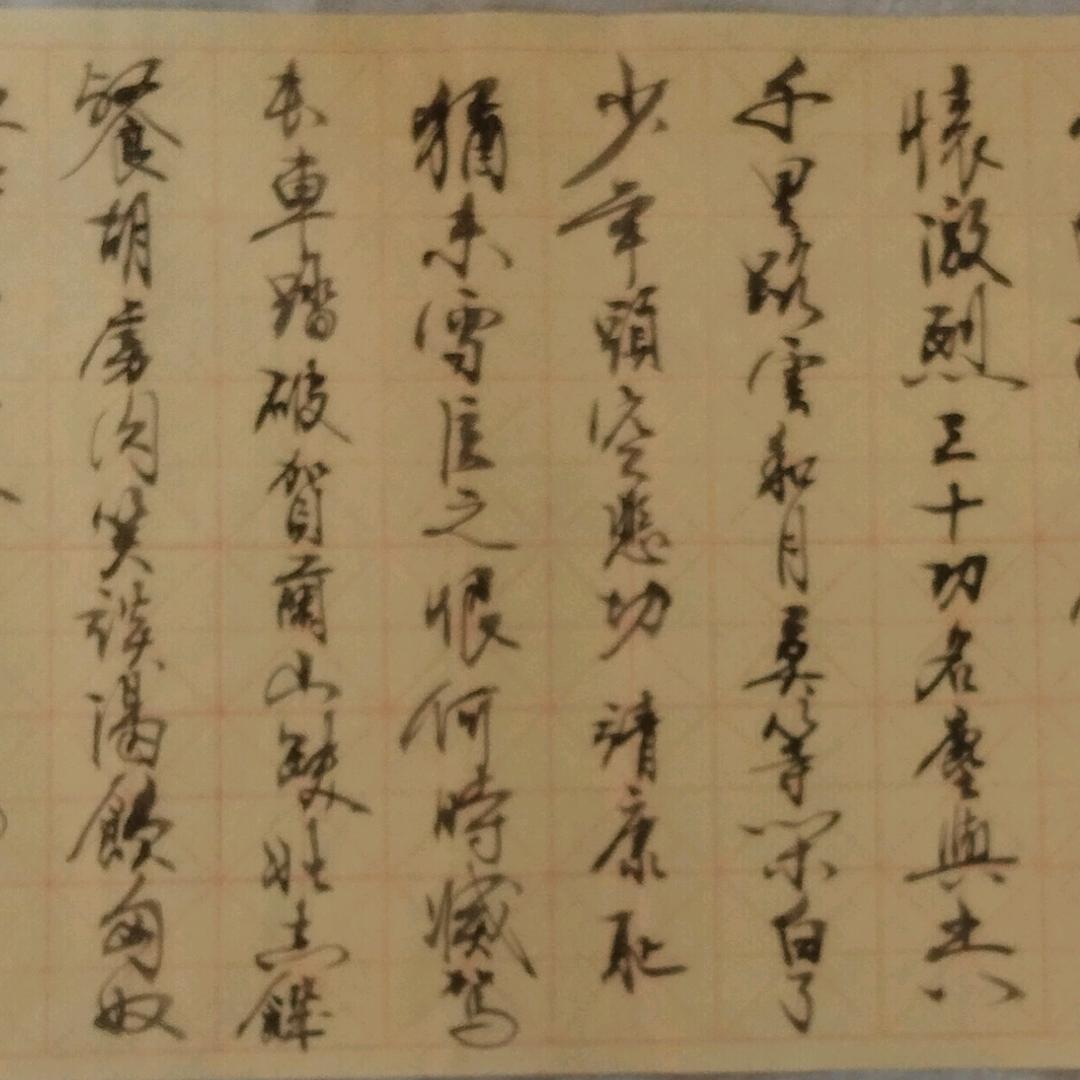 懷激烈三十功名塵與土八
千里路雲和月莫等閑白了
少年頭空悲切靖康恥
猶未雪臣之恨何時滅駕
長車踏破賀蘭山缺壯志饑
餐胡虜肉笑談渴飲匈奴